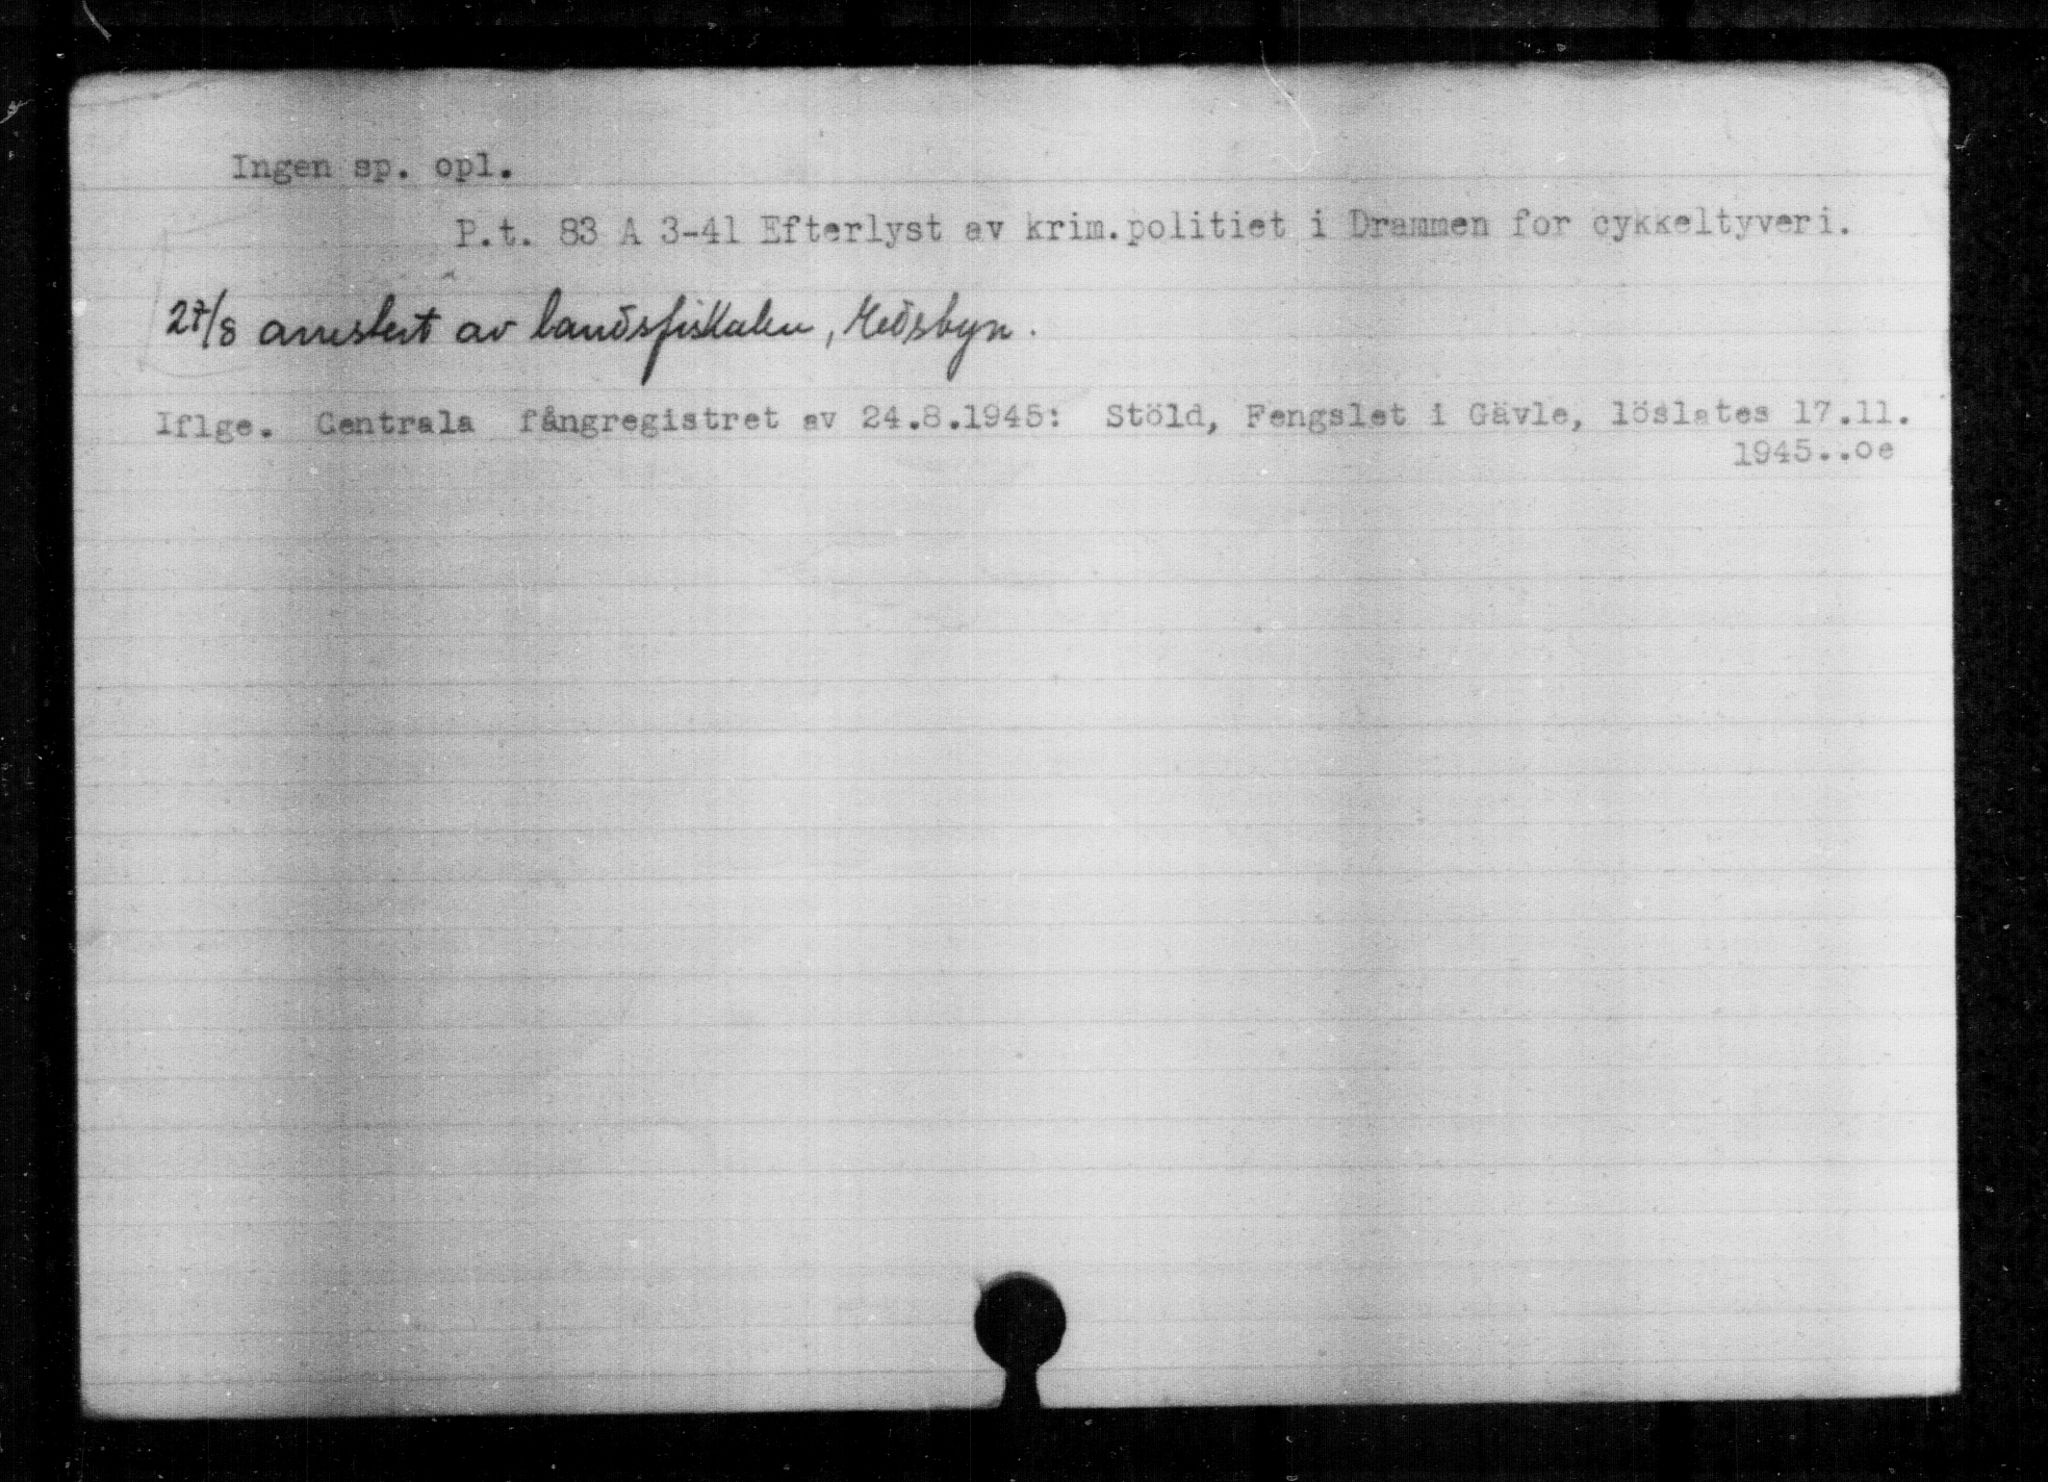 Ingen sp. opl.
P.t. 83 A 3-41 Efterlyst av krim.politiet i Drammen for cykkeltyveri.
27/8 arrestert av landsfiskalen, Hedsbyn.
Iflge. Centrala fångregistret av 24.8.1945: Stöld, Fengslet i Gävle, löslates 17.11.
1945..oe